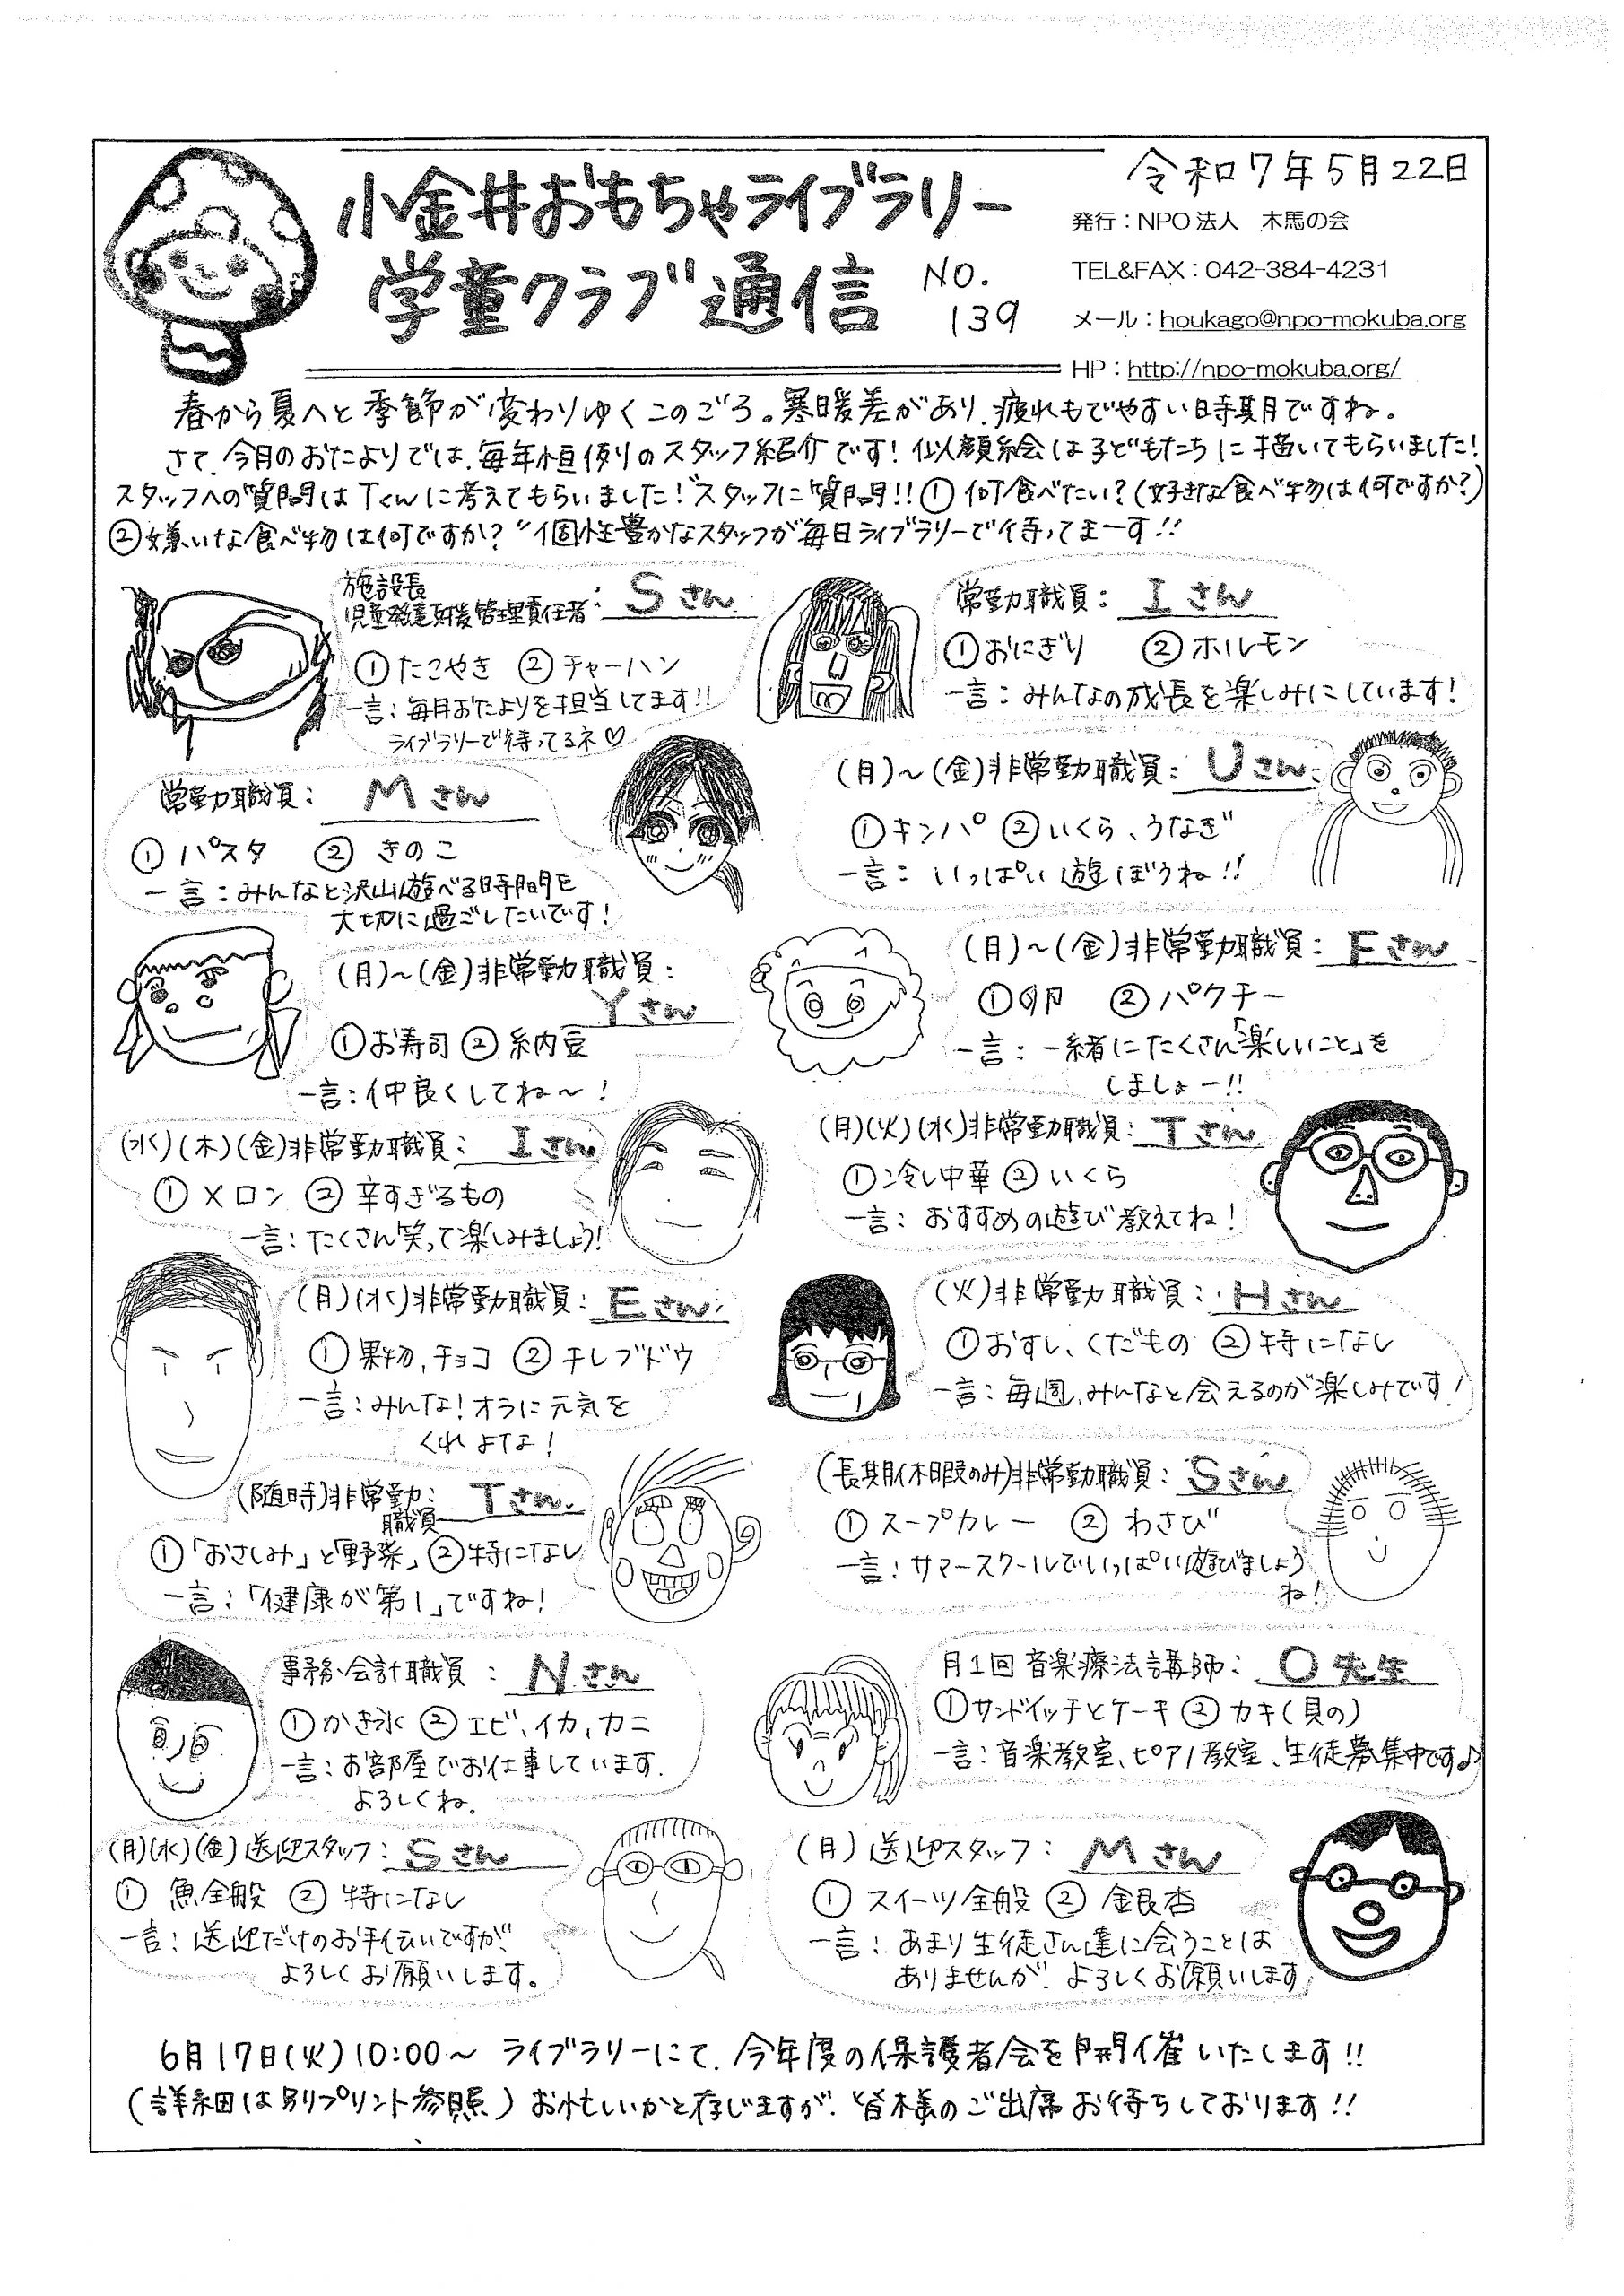 小金井おもちゃライブラリー
学童クラブ通信 NO.
139
令和7年5月22日
発行：NPO法人　木馬の会
TEL&FAX：042-384-4231
メール：houkago@npo-mokuba.org
HP：http://npo-mokuba.org/
春から夏へと季節が変わりゆくこのごろ。寒暖差があり、疲れもでやすい時期ですね。
さて、今月のおたよりでは、毎年恒例のスタッフ紹介です！似顔絵会は子どもたちに描いてもらいました！
スタッフへの質問はTくんに考えてもらいました！"スタッフに質問!!①何食べたい？(好きな食べ物は何ですか？)
②嫌いな食べ物は何ですか？"個性豊かなスタッフが毎日ライブラリーで待ってまーす!!
施設長
児童発達支援管理責任者：Sさん
①たこやき ②チャーハン
一言：毎月おたよりを担当してます!!
ライブラリーで待ってるネ♡
常勤職員：Iさん
①おにぎり ②ホルモン
一言：みんなの成長を楽しみにしています！
常勤職員：Mさん
①パスタ ②きのこ
一言：みんなと沢山遊べる時間を
大切に過ごしたいです！
(月)～(金)非常勤職員：Uさん
①キンパ ②いくら、うなぎ
一言：いっぱい遊ぼうね!!
(月)～(金)非常勤職員：
Yさん
①お寿司 ②納豆
一言：仲良くしてね～！
(月)～(金)非常勤職員：Fさん
①卵 ②パクチー
一言：一緒にたくさん「楽しいこと」を
しましょー!!
(水)(木)(金)非常勤職員：Iさん
①メロン ②辛すぎるもの
一言：たくさん笑って楽しみましょう！
(月)(火)(水)非常勤職員：Tさん
①冷し中華 ②いくら
一言：おすすめの遊び教えてね！
(月)(水)非常勤職員：Eさん
①果物、チョコ ②干しブドウ
一言：みんな！オラに元気を
くれよな！
(火)非常勤職員：Hさん
①おすし、くだもの ②特になし
一言：毎週、みんなと会えるのが楽しみです！
(随時)非常勤：Tさん
職員
①「おさしみ」と「野菜」②特になし
一言：「健康が第1」ですね！
(長期休暇のみ)非常勤職員：Sさん
①スープカレー ②わさび
一言：サマースクールでいっぱい遊びましょう
ね！
事務・会計職員：Nさん
①かき氷 ②エビ、イカ、カニ
一言：お部屋でお仕事しています.
よろしくね.
月1回音楽療法講師：O先生
①サンドイッチとケーキ ②カキ(貝の)
一言：音楽教室、ピアノ教室、生徒募集中です♪
(月)(水)(金)送迎スタッフ：Sさん
①魚全般 ②特になし
一言：送迎だけのお手伝いですが、
よろしくお願いします。
(月)送迎スタッフ：Mさん
①スイーツ全般 ②銀杏
一言：あまり生徒さん達に会うことは
ありませんが、よろしくお願いします
6月17日(火)10:00～ ライブラリーにて、今年度の保護者会を開催いたします!!
(詳細は別プリント参照)お忙しいかと存じますが、皆様のご出席お待ちしております!!